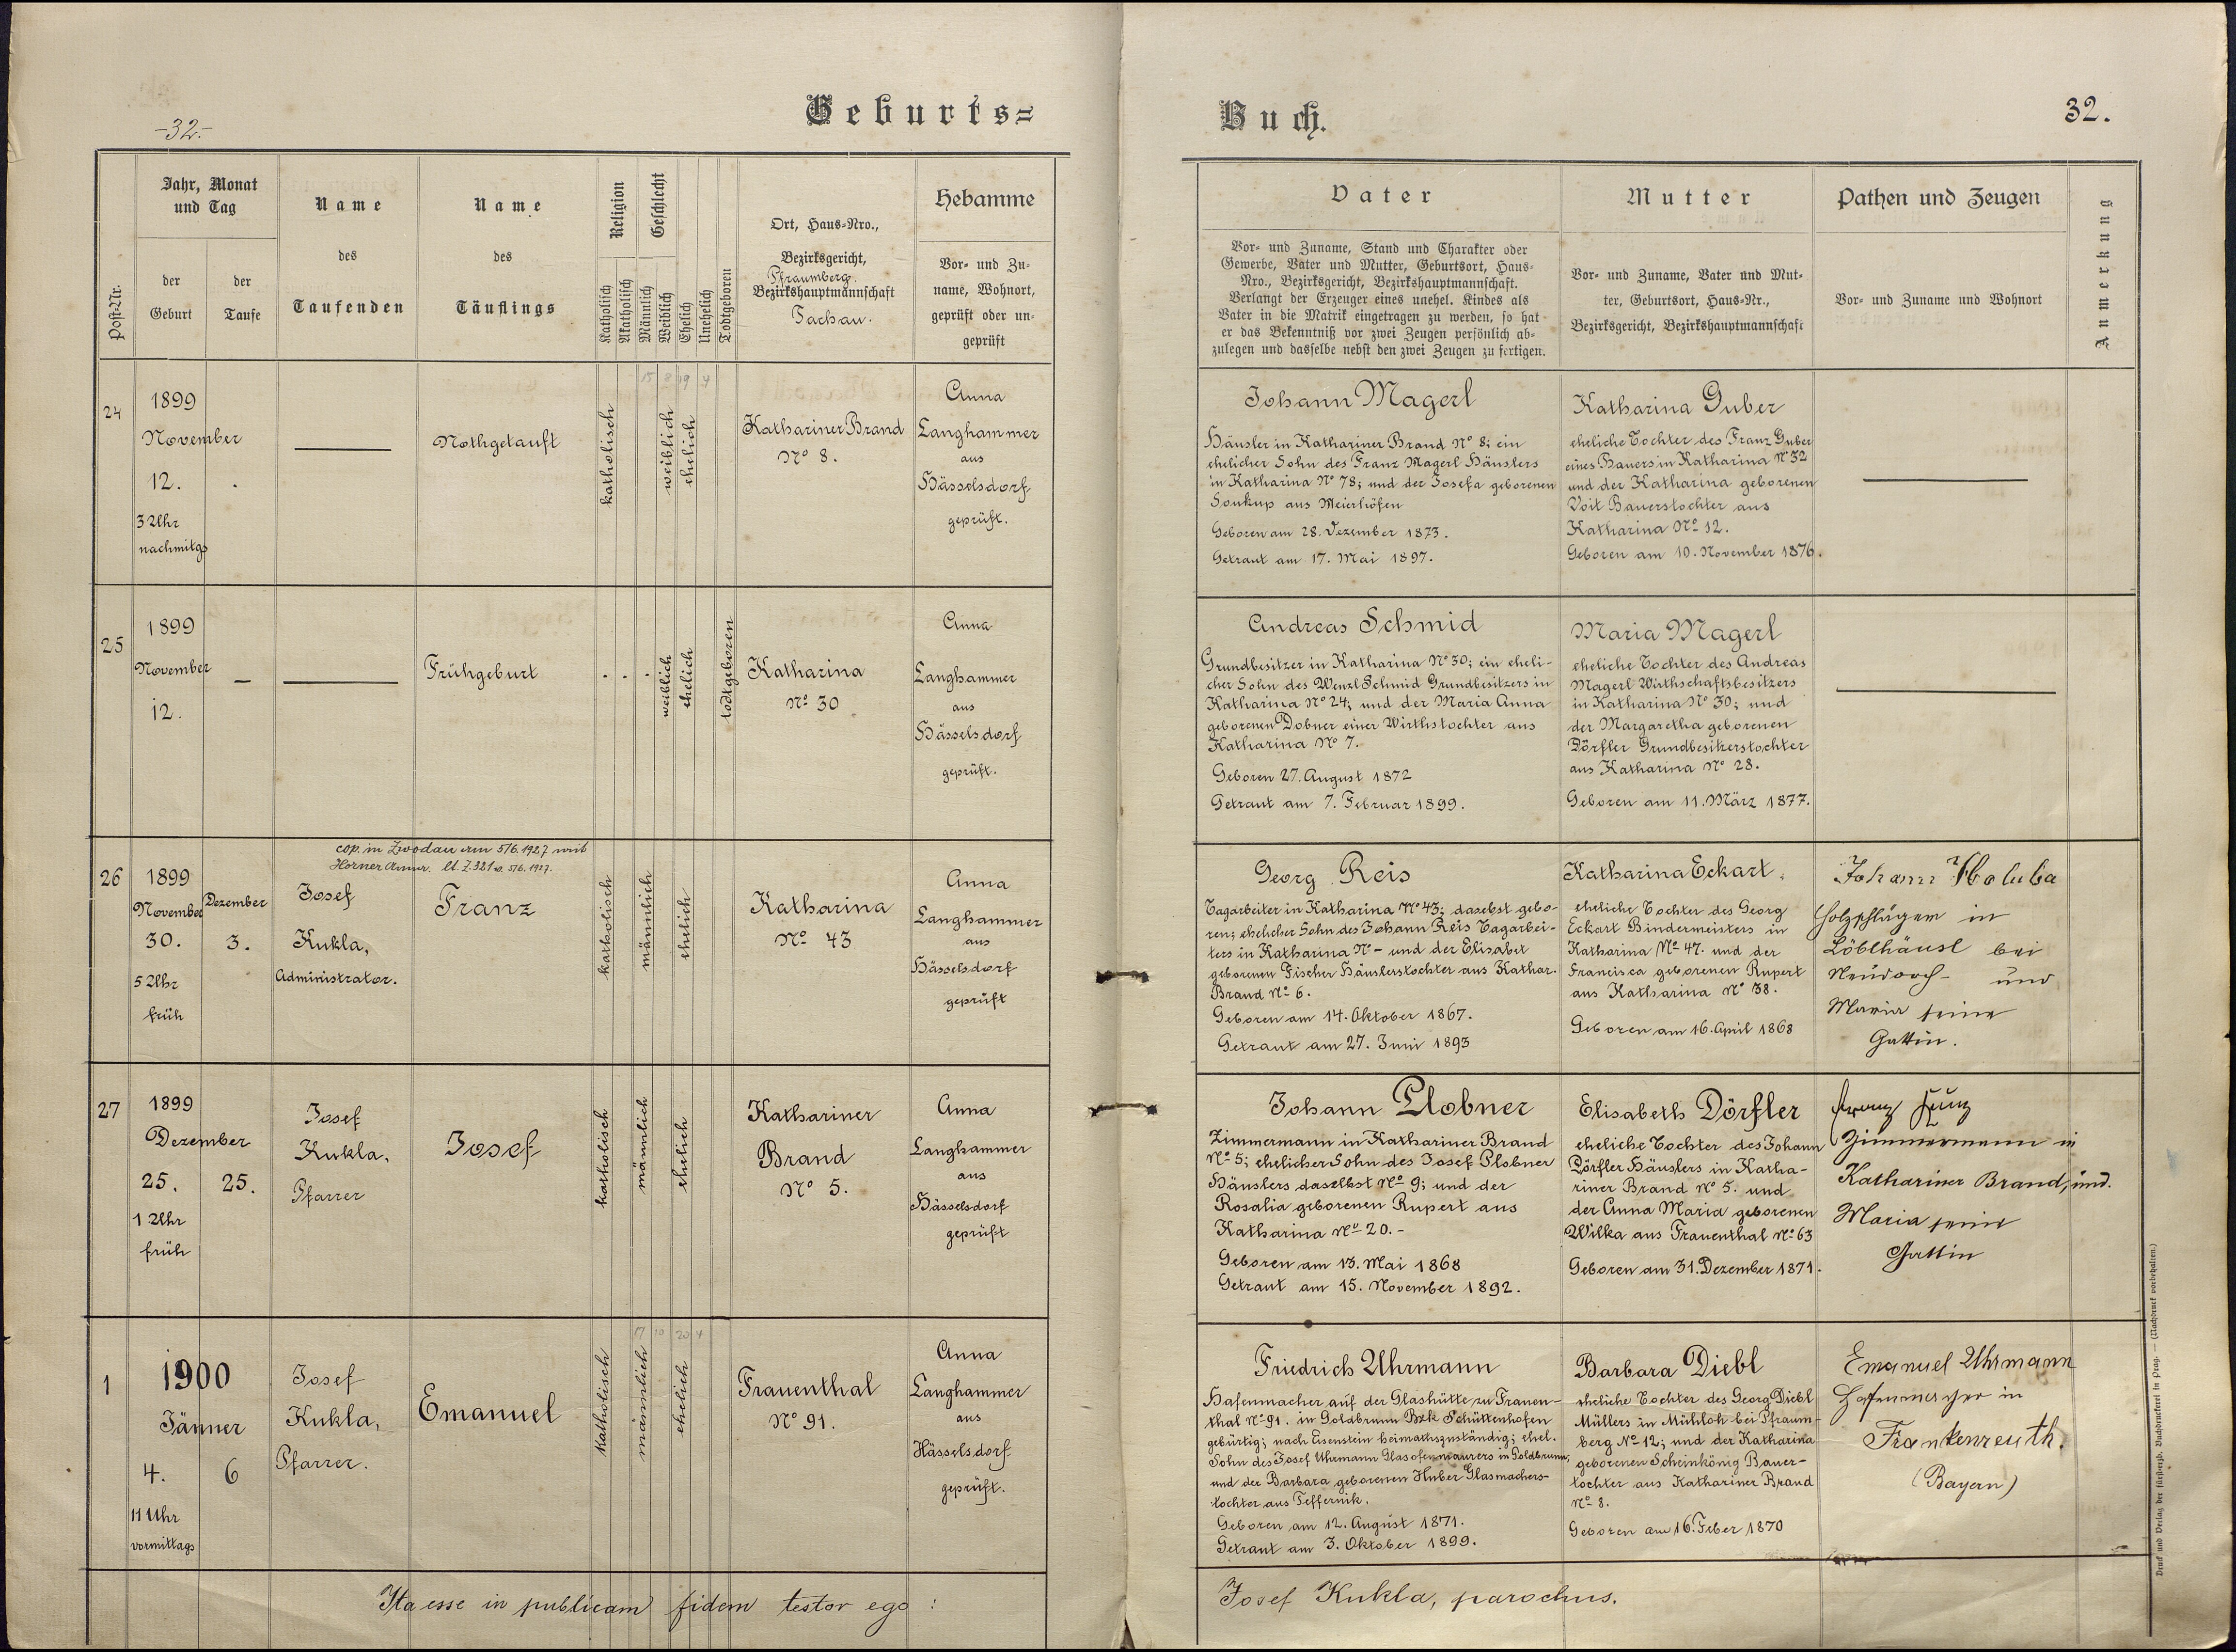 -32.-
Geburts=
Buch.
32.
Post-Nr.
Jahr, Monat
und Tag
der
Geburt
der
Taufe
Name
des
Taufenden
Name
des
Täuflings
Religion
Katholisch
Akatholisch
Geschlecht
Männlich
Weiblich
Ehelich
Unehelich
Todtgeboren
Ort, Haus-Nro.,
Bezirksgericht,
Pfraumberg.
Bezirkshauptmannschaft
Tachau.
Hebamme
Vor- und Zu-
name, Wohnort,
geprüft oder un-
geprüft
Vater
Vor- und Zuname, Stand und Charakter oder
Gewerbe, Vater und Mutter, Geburtsort, Haus-
Nro., Bezirksgericht, Bezirkshauptmannschaft.
Verlangt der Erzeuger eines unehel. Kindes als
Vater in die Matrik eingetragen zu werden, so hat
er das Bekenntniß vor zwei Zeugen persönlich ab-
zulegen und dasselbe nebst den zwei Zeugen zu fertigen.
Mutter
Vor- und Zuname, Vater und Mut-
ter, Geburtsort, Haus-Nr.,
Bezirksgericht, Bezirkshauptmannschaft
Pathen und Zeugen
Vor- und Zuname und Wohnort
Anmerkung
15 8 19 4
24
1899
November
12.
3 Uhr
nachmitgs
Nothgetauft
katholisch
weiblich
ehelich
Kathariner Brand
No 8.
Anna
Langhammer
aus
Hässelsdorf
geprüft.
Johann Magerl
Häusler in Kathariner Brand No 8; ein
ehelicher Sohn des Franz Magerl Häuslers
in Katharina No 78; und der Josefa geborenen
Soukup aus Meierhöfen
Geboren am 28. Dezember 1873.
Getraut am 17. Mai 1897.
Katharina Guber
eheliche Tochter des Franz Guber
eines Bauers in Katharina No 32
und der Katharina geborenen
Voit Bauerstochter aus
Katharina No 12.
Geboren am 10. November 1876.
25
1899
November
12.
Frühgeburt
weiblich
ehelich
todtgeboren
Katharina
No 30
Anna
Langhammer
aus
Hässelsdorf
geprüft.
Andreas Schmid
Grundbesitzer in Katharina No 30; ein eheli-
cher Sohn des Wenzl Schmid Grundbesitzers in
Katharina No 24; und der Maria Anna
geborenen Dobner einer Wirthstochter aus
Katharina No 7.
Geboren 27. August 1872
Getraut am 7. Februar 1899.
Maria Magerl
eheliche Tochter des Andreas
Magerl Wirthschaftsbesitzers
in Katharina No 30; und
der Margaretha geborenen
Dörfler Grundbesitzerstochter
aus Katharina No 28.
Geboren am 11. März 1877.
cop. in Zwodau am 5/6. 1927 mit
Horner Anna. lt. Z. 321 v. 5/6. 1927.
26
1899
November
30.
5 Uhr
früh
Dezember
3.
Josef
Kukla,
Administrator.
Franz
katholisch
männlich
ehelich
Katharina
No 43
Anna
Langhammer
aus
Hässelsdorf
geprüft
Georg Reis
Tagarbeiter in Katharina No 43; daselbst gebo-
ren; ehelicher Sohn des Johann Reis Tagarbei-
ters in Katharina No - und der Elisabet
geborenen Fischer Häuslerstochter aus Kathar.
Brand No 6.
Geboren am 14. Oktober 1867.
Getraut am 27. Juni 1893
Katharina Eckart,
eheliche Tochter des Georg
Eckart Bindermeisters in
Katharina No 47. und der
Francisca geborenen Rupert
aus Katharina No 38.
Geboren am 16. April 1868
Johann Holuba
Holzschläger in
Löblhäusl bei
Neudorf - und
Maria seine
Gattin.
27
1899
Dezember
25.
25.
1 Uhr
früh
Josef
Kukla,
Pfarrer
Josef
katholisch
männlich
ehelich
Kathariner
Brand
No 5.
Anna
Langhammer
aus
Hässelsdorf
geprüft
Johann Plobner
Zimmermann in Kathariner Brand
No 5; ehelicher Sohn des Josef Plobner
Häuslers daselbst No 9; und der
Rosalia geborenen Rupert aus
Katharina No 20.-
Geboren am 13. Mai 1868
Getraut am 15. November 1892.
Elisabeth Dörfler
eheliche Tochter des Johann
Dörfler Häuslers in Katha-
riner Brand No 5. und
der Anna Maria geborenen
Wilka aus Frauenthal No 63
Geboren am 31. Dezember 1871.
Franz
Zimmermann in
Kathariner Brand, und.
Maria seine
Gattin
17 10 20 4
1
1900
Jänner
4.
6
11 Uhr
vormittags
Josef
Kukla,
Pfarrer.
Emanuel
katholisch
männlich
ehelich
Frauenthal
No 91.
Anna
Langhammer
aus
Hässelsdorf
geprüft.
Friedrich Uhrmann
Hafenmacher auf der Glashütte zu Frauen-
thal No 91. in Goldbrunn Bzk Schüttenhofen
gebürtig; nach Eisenstein heimathszuständig; ehel.
Sohn des Josef Uhrmann Glasofenmaurers in Goldbrunn;
und der Barbara geborenen Huber Glasmachers-
tochter aus Teffernik.
Geboren am 12. August 1871.
Getraut am 3. Oktober 1899.
Barbara Diebl
eheliche Tochter des Georg Diebl
Müllers in Mühlloh bei Pfraum-
berg No 12; und der Katharina
geborenen Scheinkönig Bauer-
tochter aus Kathariner Brand
No 8.
Geboren am 16. Feber 1870
Emanuel Uhrmann
Hafenmacher in
Frankenreuth.
(Bayern)
Ita esse in publicam fidem testor ego :
Josef Kukla, parochus.
Druck und Verlag der fürsterzb. Buchdruckerei in Prag. — (Nachdruck vorbehalten.)